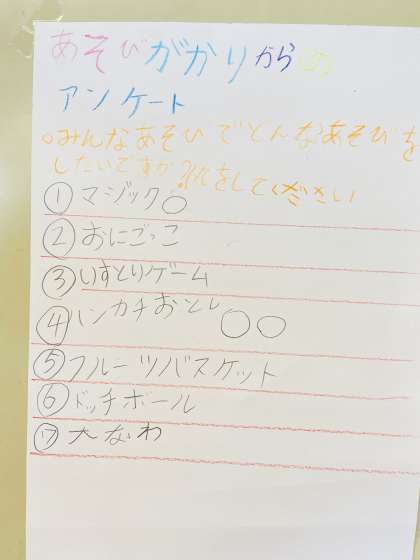 あそびがかりからの
アンケート
○みんなあそびでどんなあそびを
したいですか?○をしてください
① マジック○
② おにごっこ
③ いすとりゲーム
④ ハンカチおとし ○○
⑤ フルーツバスケット
⑥ ドッチボール
⑦ 大なわ